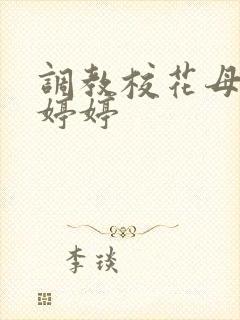 調教校花母
婷婷
李琰